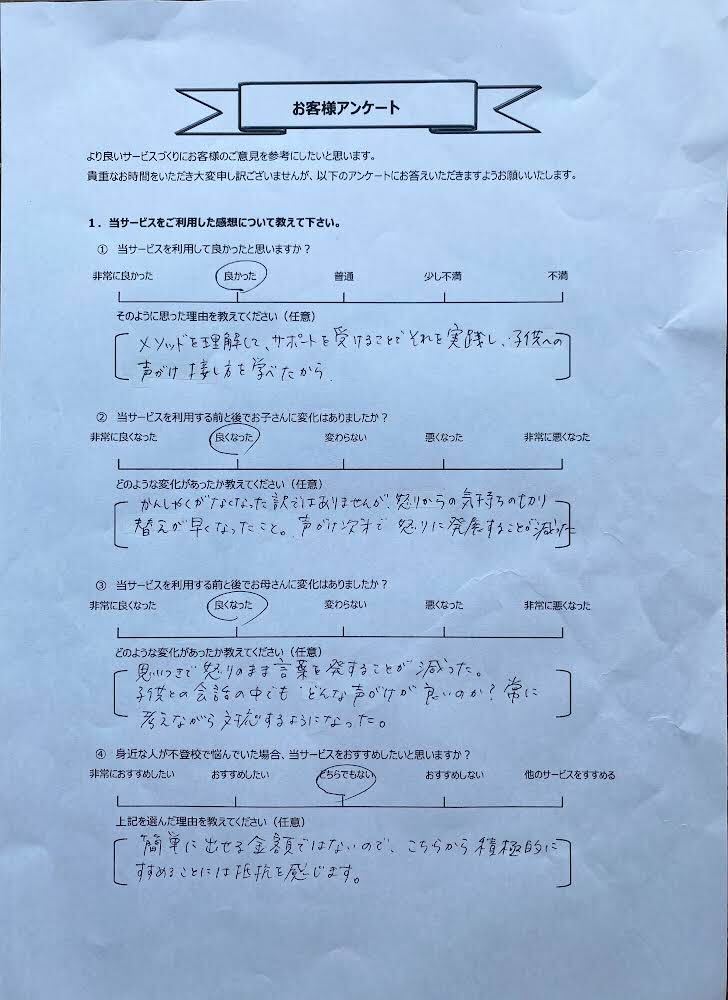 お客様アンケート
より良いサービスづくりにお客様のご意見を参考にしたいと思います。
貴重なお時間をいただき大変申し訳ございませんが、以下のアンケートにお答えいただきますようお願いいたします。
1.当サービスをご利用した感想について教えて下さい。
① 当サービスを利用して良かったと思いますか？
非常に良かった 良かった 普通 少し不満 不満
そのように思った理由を教えてください（任意）
メソッドを理解して、サポートを受けることでそれを実践し、子供への
声がけ 接し方を学べたから.
② 当サービスを利用する前と後でお子さんに変化はありましたか？
非常に良くなった 良くなった 変わらない 悪くなった 非常に悪くなった
どのような変化があったか教えてください（任意）
かんしゃくがなくなった訳ではありませんが、怒りからの気持ちの切り
替えが早くなったこと。声がけ次第で 怒りに発展することが減った
③ 当サービスを利用する前と後でお母さんに変化はありましたか？
非常に良くなった 良くなった 変わらない 悪くなった 非常に悪くなった
どのような変化があったか教えてください（任意）
思いつきで怒りのまま言葉を発することが減った。
子供との会話の中でも どんな声がけが良いのか？常に
考えながら対応するようになった。
④ 身近な人が不登校で悩んでいた場合、当サービスをおすすめしたいと思いますか？
非常におすすめしたい おすすめしたい どちらでもない おすすめしない 他のサービスをすすめる
上記を選んだ理由を教えてください（任意）
簡単に出せる金額ではないので、こちらから積極的に
すすめることには抵抗を感じます。